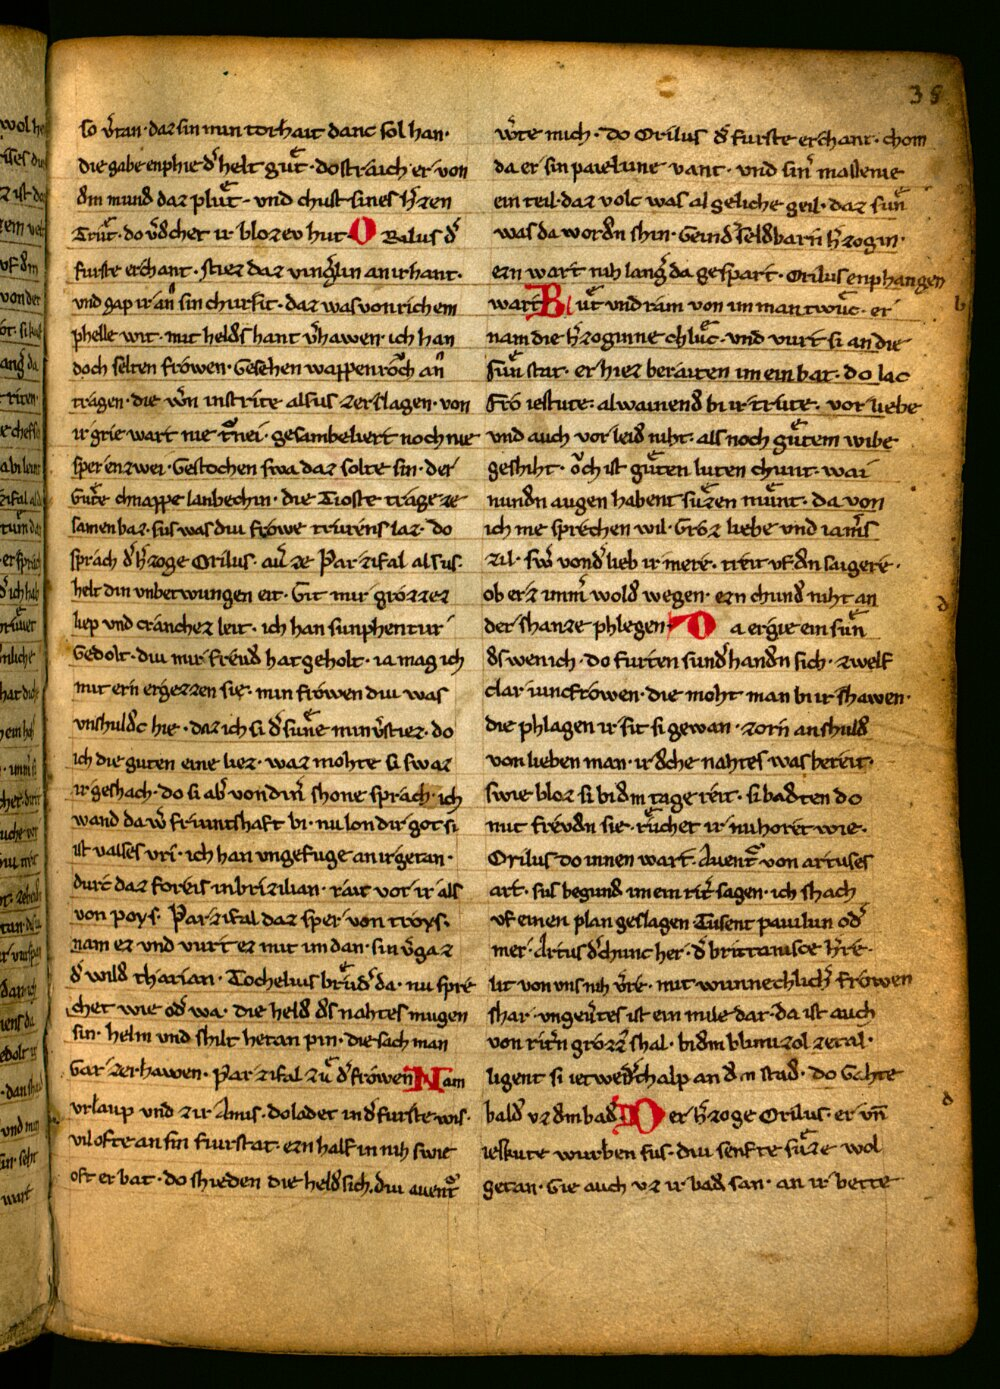 38
so v̄tan · daz sin mun torhait danc sol han ·
die gabe enphie d̄ helt gůt · do straich er von
dem mund daz plůt · und chust sines h̄zen
Trůt · do v̄dchet ir blozev hut O Rilus d̄
furste erchant · stiez daz vinḡlin an ir hant ·
vnd gap ir an̄ sin chursit · daz was von richem
phelle wit · mit heldes hant v̄hawen · ich han
doch selten frówen · Gesehen wappenroch an̄
tragen · die wn̄ in strite alsus zerslagen · von
ir grie wart nie t̄nei · gesambeliert noch nie
sper enzwei · Gestochen swa daz solte sin · der
Gůte chnappe lanbechin · die Tioste trůge ze
samen baz · sus was div frowe trurens laz · do
sprach d̄ h̄zoge Orilus · av̄ ze Parzifal alsus ·
helt din vnbetwungen eit · Git mir grózzez
liep und cranchez leit · ich han sunphentur
Gedolt · div mir freud hat geholt · ia mag ich
mit ern ergezzen sie · min frówen div was
vnshuldc hie · daz ich si d̄ sůne min v̄stiez · do
ich die guten eine liez · waz mohte si swaz
ir geshach · do si ab̄ von din̄ shone sprach · ich
wand da ẘ friuntshaft bi · nu lon dir got si
ist valses vri · ich han vngefuge an ir getan ·
durc daz foreis in brizilian · rait vor ir als
von poys · Parzifal daz sper von troys ·
nam ez und vurt ez mit im dan · sin v̄gaz
d̄ wild tharian · Tochelius brůd̄ da · nu spre
chet wie od̄ wa · die held des nahtes mugen
sin · helm und shilt hetan pin · die sach man
Gar zerhawen · Parzifal zů d̄ frówen Nam
vrlaup und zir Amis · do ladet in d̄ furste wis ·
vil ofte an sin fiurstat · ezn half in nih swie
oft er bat · do shieden die held sich · div auent̄
ẘte mich · do Orilus d̄ furste erchant · chom
da er sin paielune vant · vnd sin̄ massenie
ein teil · daz volc was algeliche geil · daz sůn̄
was da worden shin · Gein d̄ seldbarn h̄zogin ·
ezn wart nih lanḡ da gespart · Orilus enphangen
wart Blůt vnd ram von im man twůc · er
nam die h̄zoginne chlůc · vnd vurt si an die
sůn stat · er hiez beraiten im ein bat · do lac
Fró iestute · alwainend bi ir trute · vor liebe
vnd auch vor leid niht · als noch gůtem wibe
geshiht · ǒch ist gůten luten chunt · wai
nundn augen habent sůzen můnt · da von
ich me sprechen wil · Gróz liebe vnd iam̄s
zil · sw̄ von d̄ lieb ir mere · treit vf den saigere ·
ob erz imm̄ wold wegen · ezn chund niht an
der shanze phlegen Do a ergie ein sůn
des wen ich · do furten sund̄ handn sich · zwelf
clar iuncfrówen · die moht man bi ir shawen ·
die phlagen ir sit si gewan · zorn an shuld
von lieben man · ir d̄che nahtes was bereit ·
swie bloz si bi dem tage reit · si badten do
mit frevdn sie · růchet ir nu horet wie ·
Orilus do innen wart · Auent̄ von artuses
art · sus begund im ein rit̄ sagen · ich shach
vf einen plan geslagen Tusent paulun od̄
mer · Artus d̄ chunc her · d̄ brittanisce h̄re ·
lit von vns nih v̄re · mit wunnechlich̄ frówen
shar · vngeůtes ist ein mile dar · da ist auch
von rit̄n grózz̄ shal · bi dem blimzol zetal ·
ligent si ietwedhalp an dem stad · do Gahte
bald vz dem bad Der h̄zoge Orilus · er vn̄
ieskute wurben sus · div senfte sůze wol
getan · Gie auch vz ir bad san · an ir bette
b
d
d